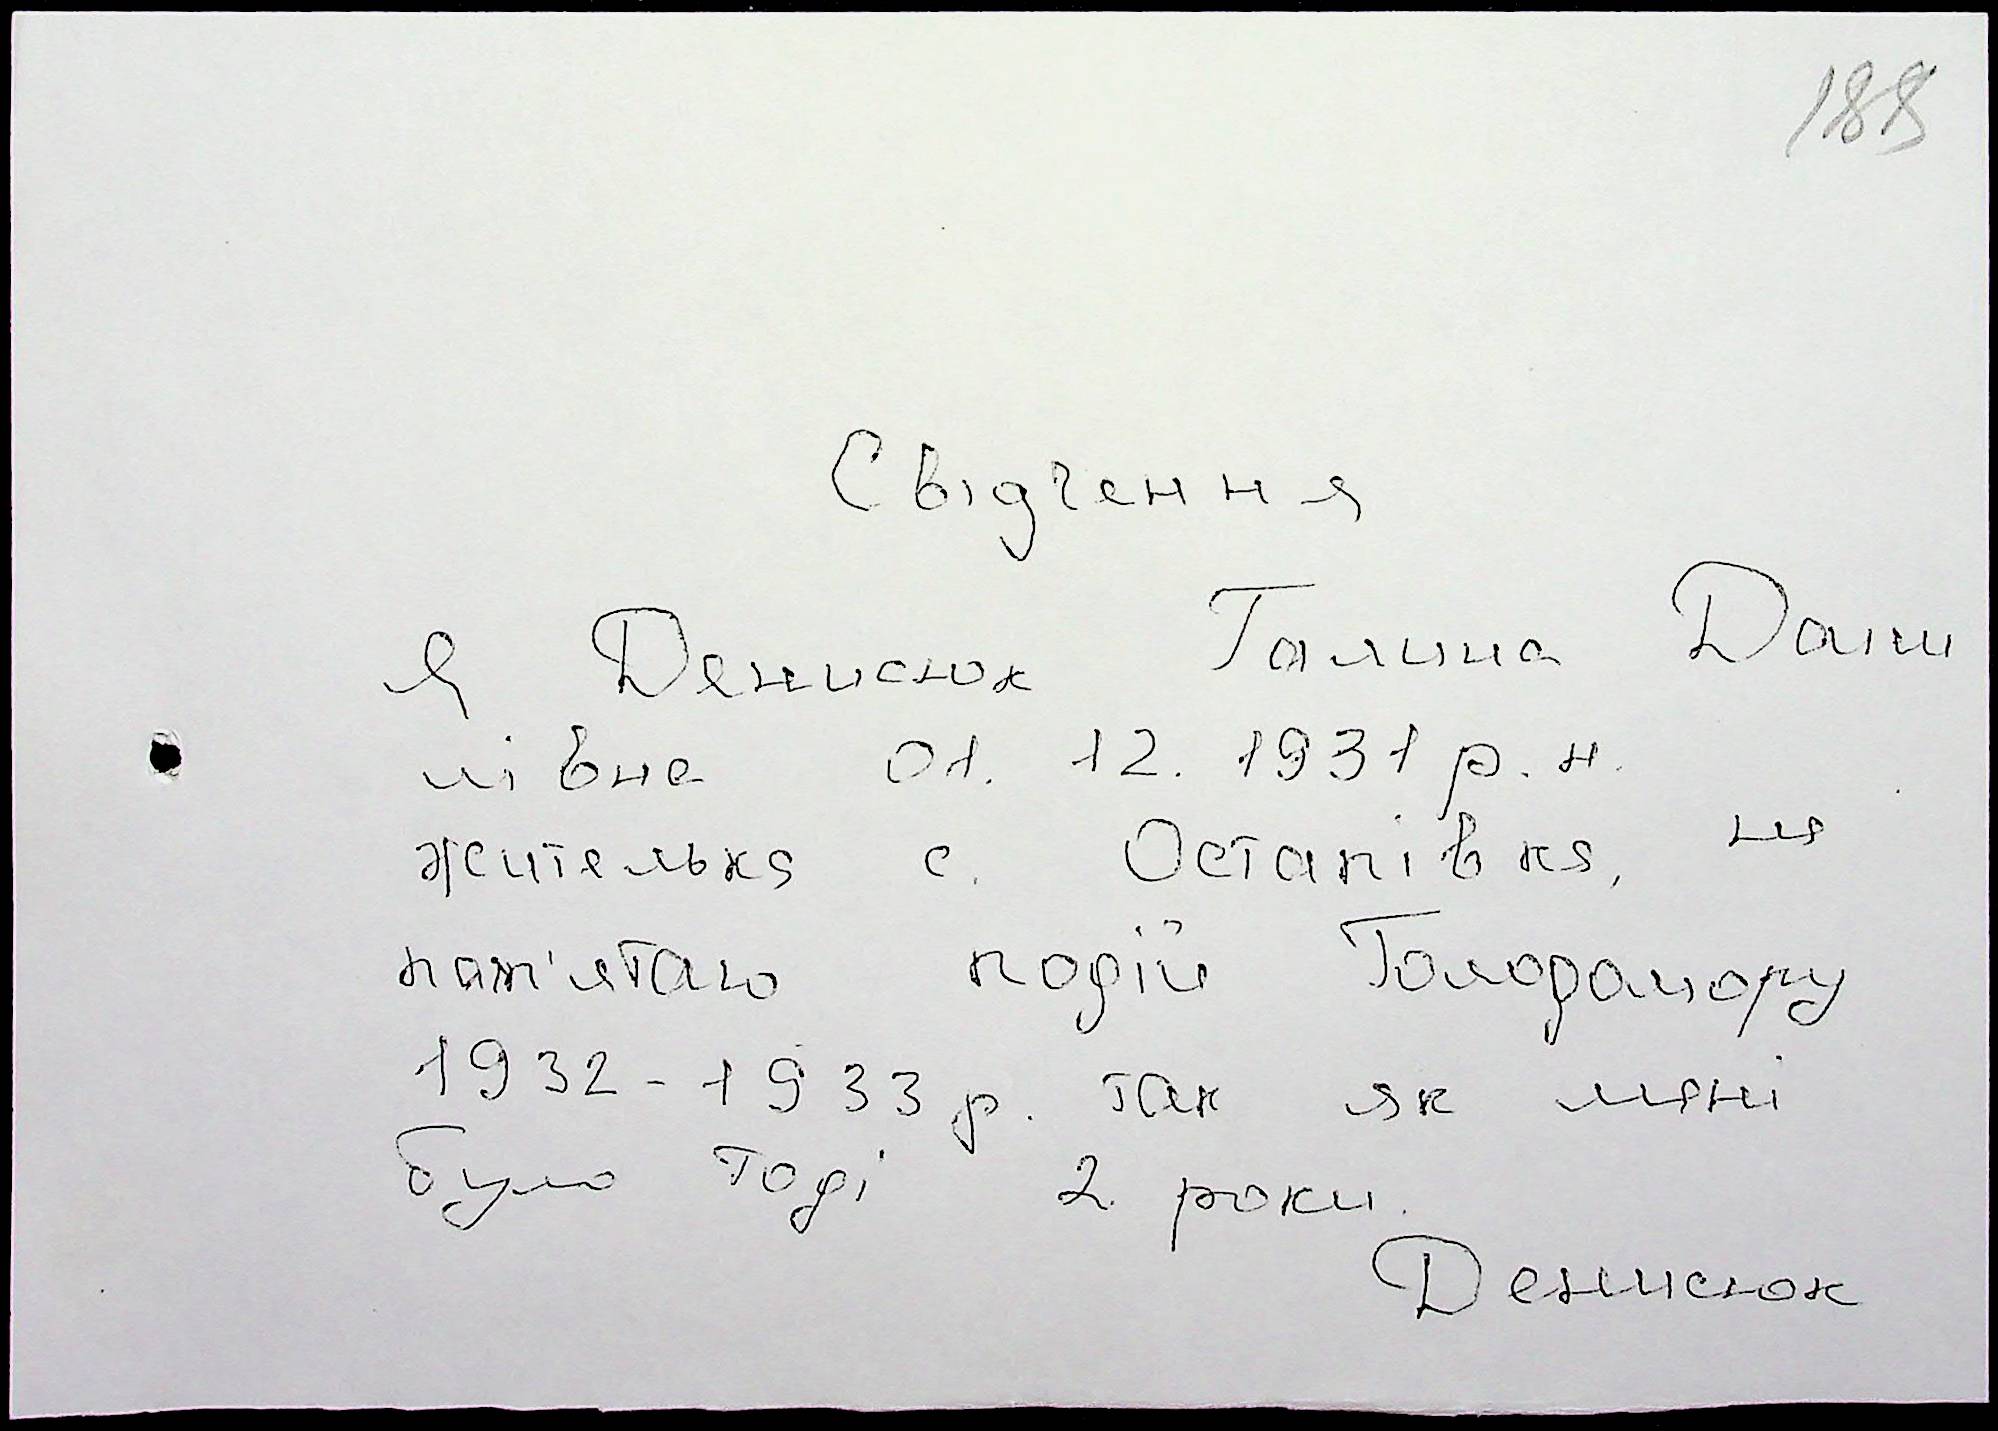 188
Свідчення
Я Денисюк Галина Дани
лівна 01. 12. 1931 р. н.
жителька с. Остапівка, не
пам'ятаю подій Голодомору
1932-1933 р. так як мені
було тоді 2 роки.
Денисюк